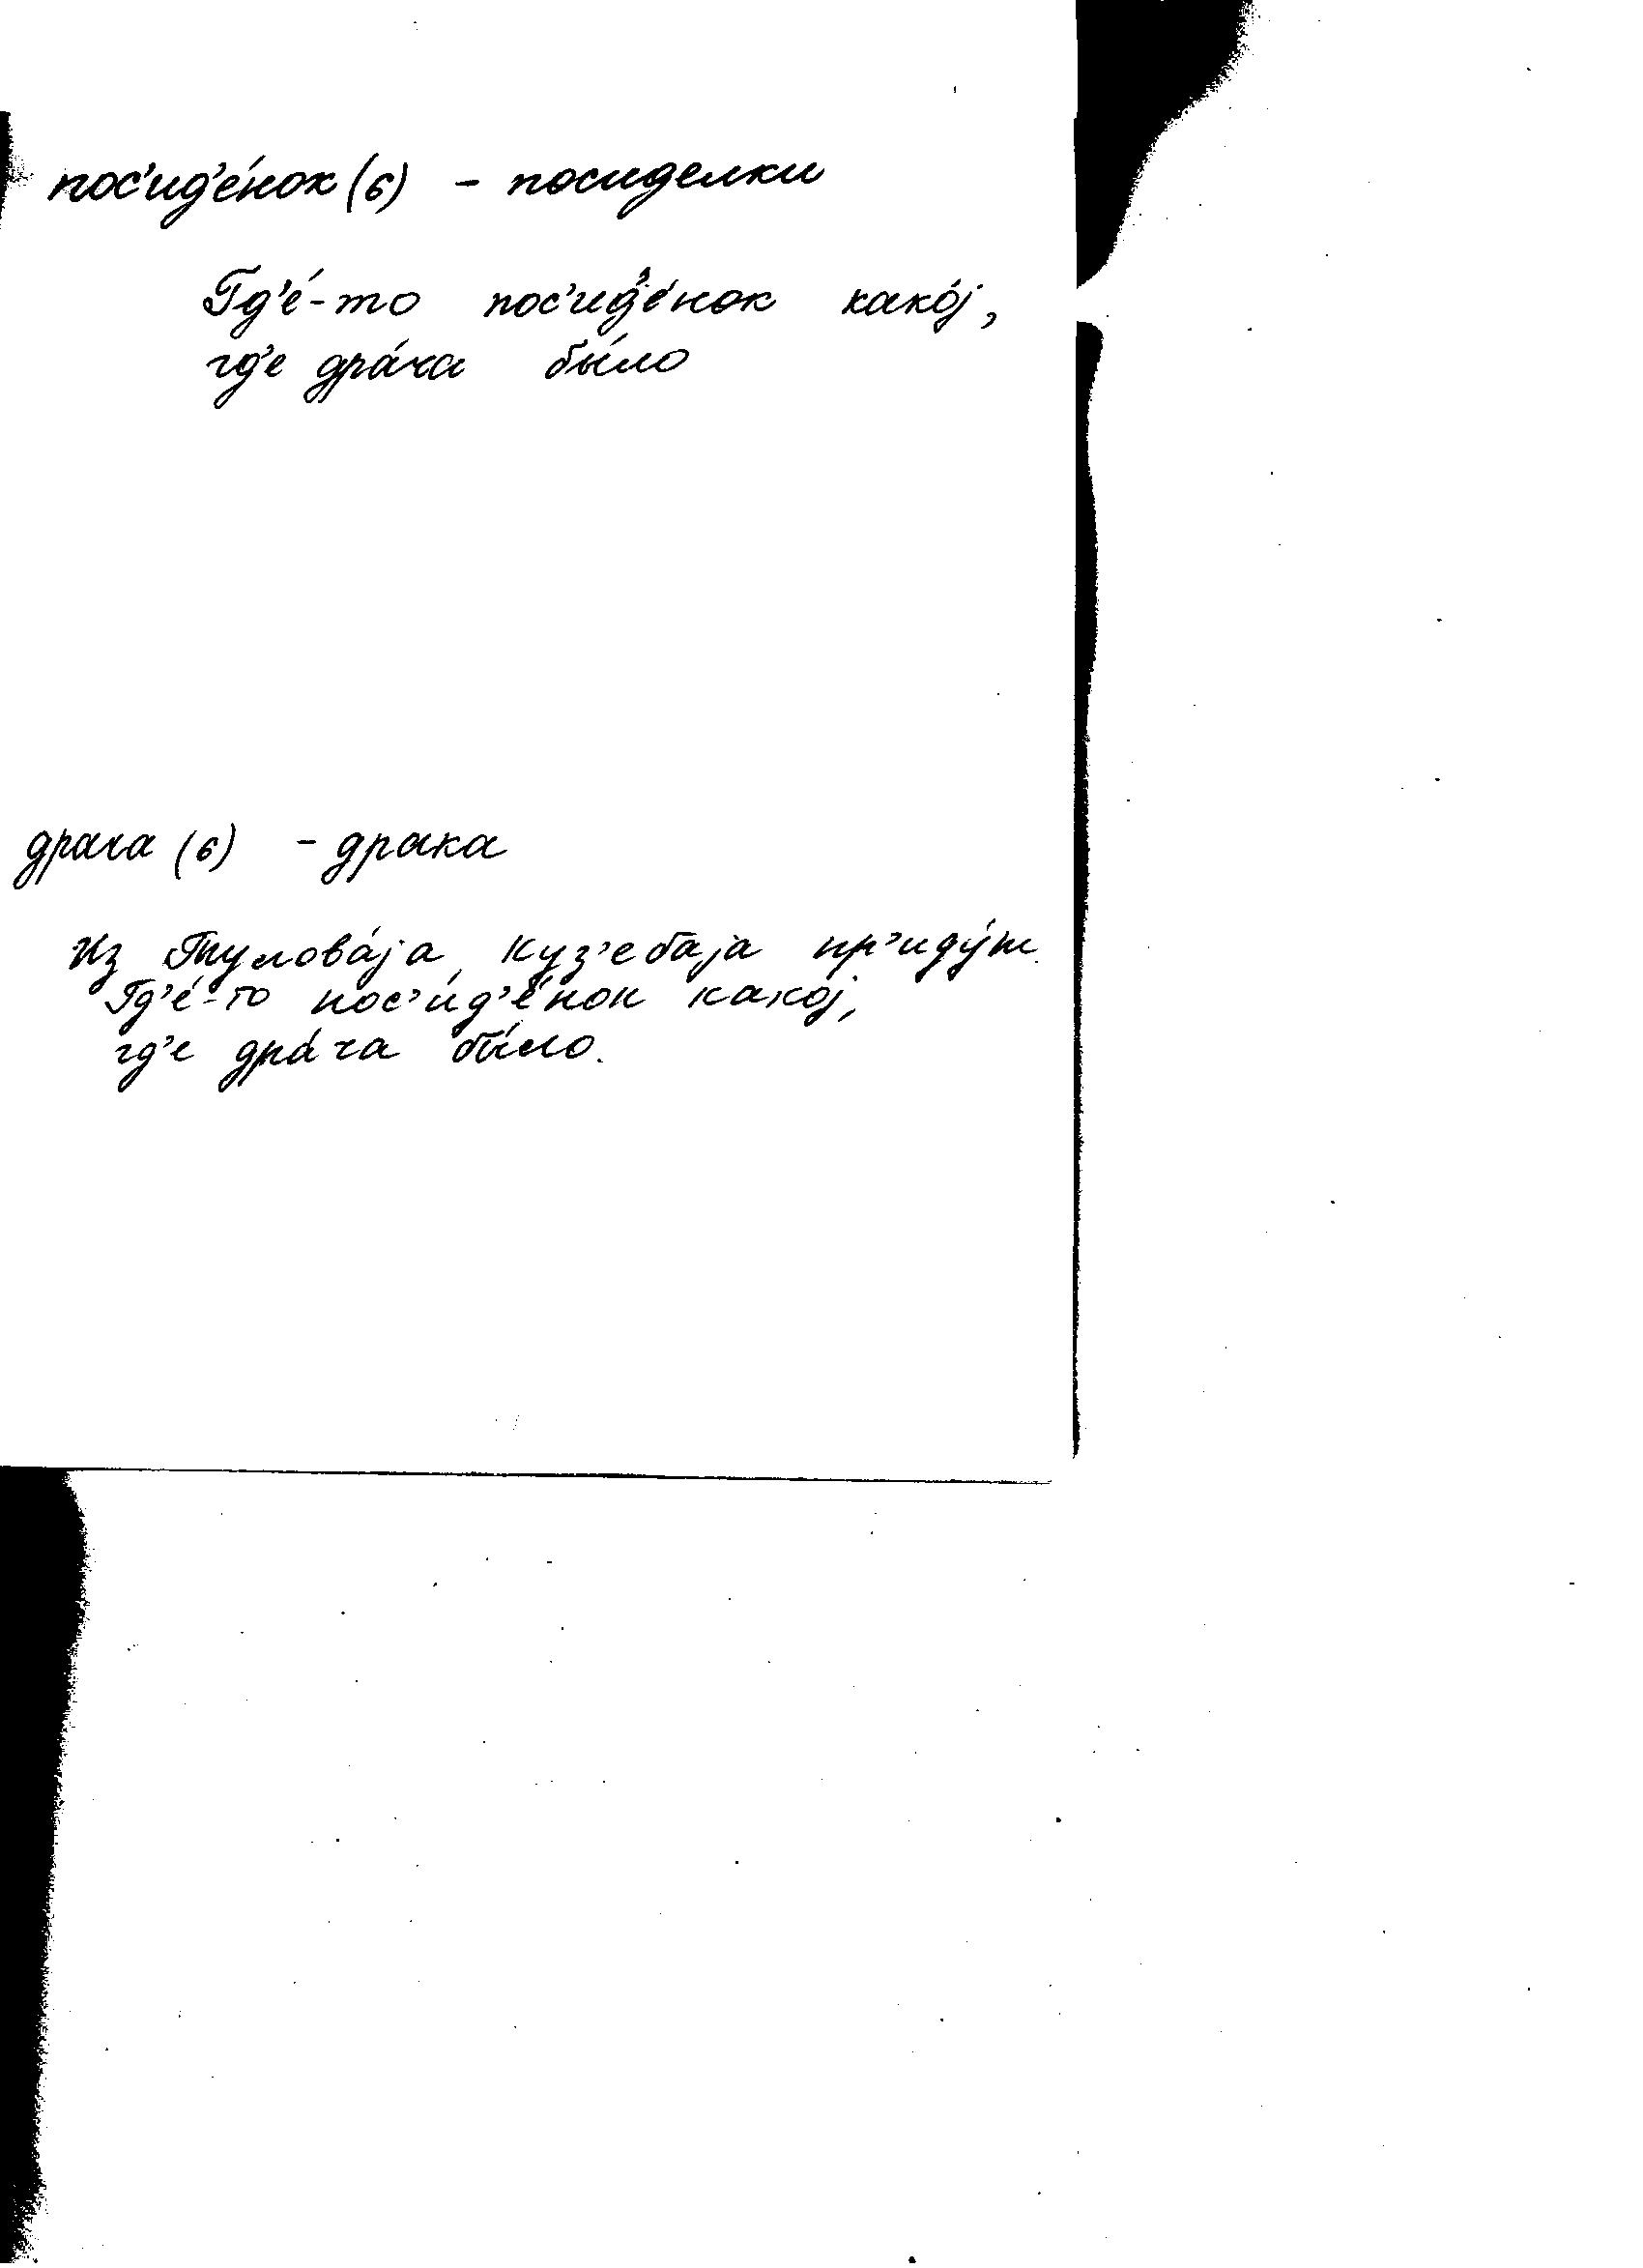 пос'ид'е́нок (6) - посиделки
Гд'е́-то пос'ид'е́нок како́j,
гд'е дра́ча бы́ло
драча (6) - драка
Из Туловájа, Куз'ебаjа пр'иду́т.
Гд'е́-то пос'ид'е́нок какоj,
гд'е дра́ча бы́ло.